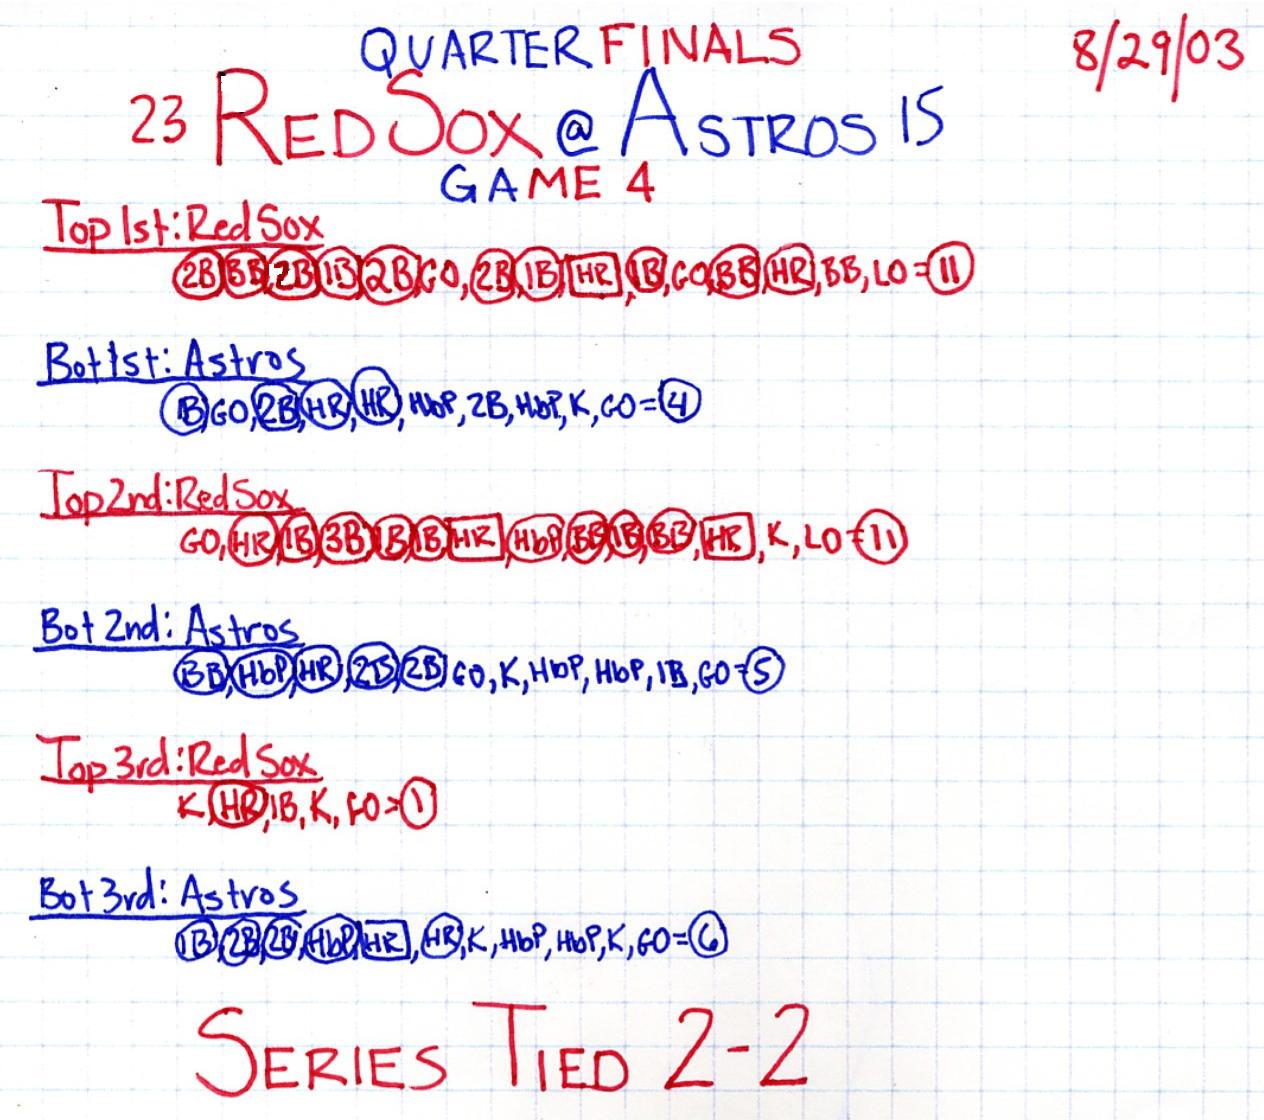 QUARTER FINALS
8/29/03
23 RED SOX @ ASTROS 15
GAME 4
Top 1st: Red Sox
2B, BB, 2B, 1B, 2B, GO, 2B, 1B, HR, 1B, GO, BB, HR, BB, LO = 11
Bot 1st: Astros
1B, GO, 2B, HR, HR, HbP, 2B, HbP, K, GO = 4
Top 2nd: Red Sox
GO, HR, 1B, 3B, 1B, 1B, HR, HbP, BB, 1B, BB, HR, K, LO = 11
Bot 2nd: Astros
BB, HbP, HR, 2B, 2B, GO, K, HbP, HbP, 1B, GO = 5
Top 3rd: Red Sox
K, HR, 1B, K, FO = 1
Bot 3rd: Astros
1B, 2B, 2B, HbP, HR, HR, K, HbP, HbP, K, GO = 6
SERIES TIED 2-2